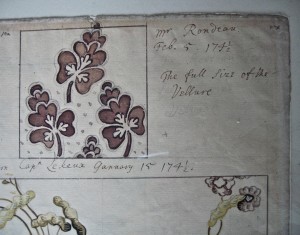 Mr Rondeau
Feb. 5 174½
The full size of the
Vellure
Capt Lekeux January 15 174½.